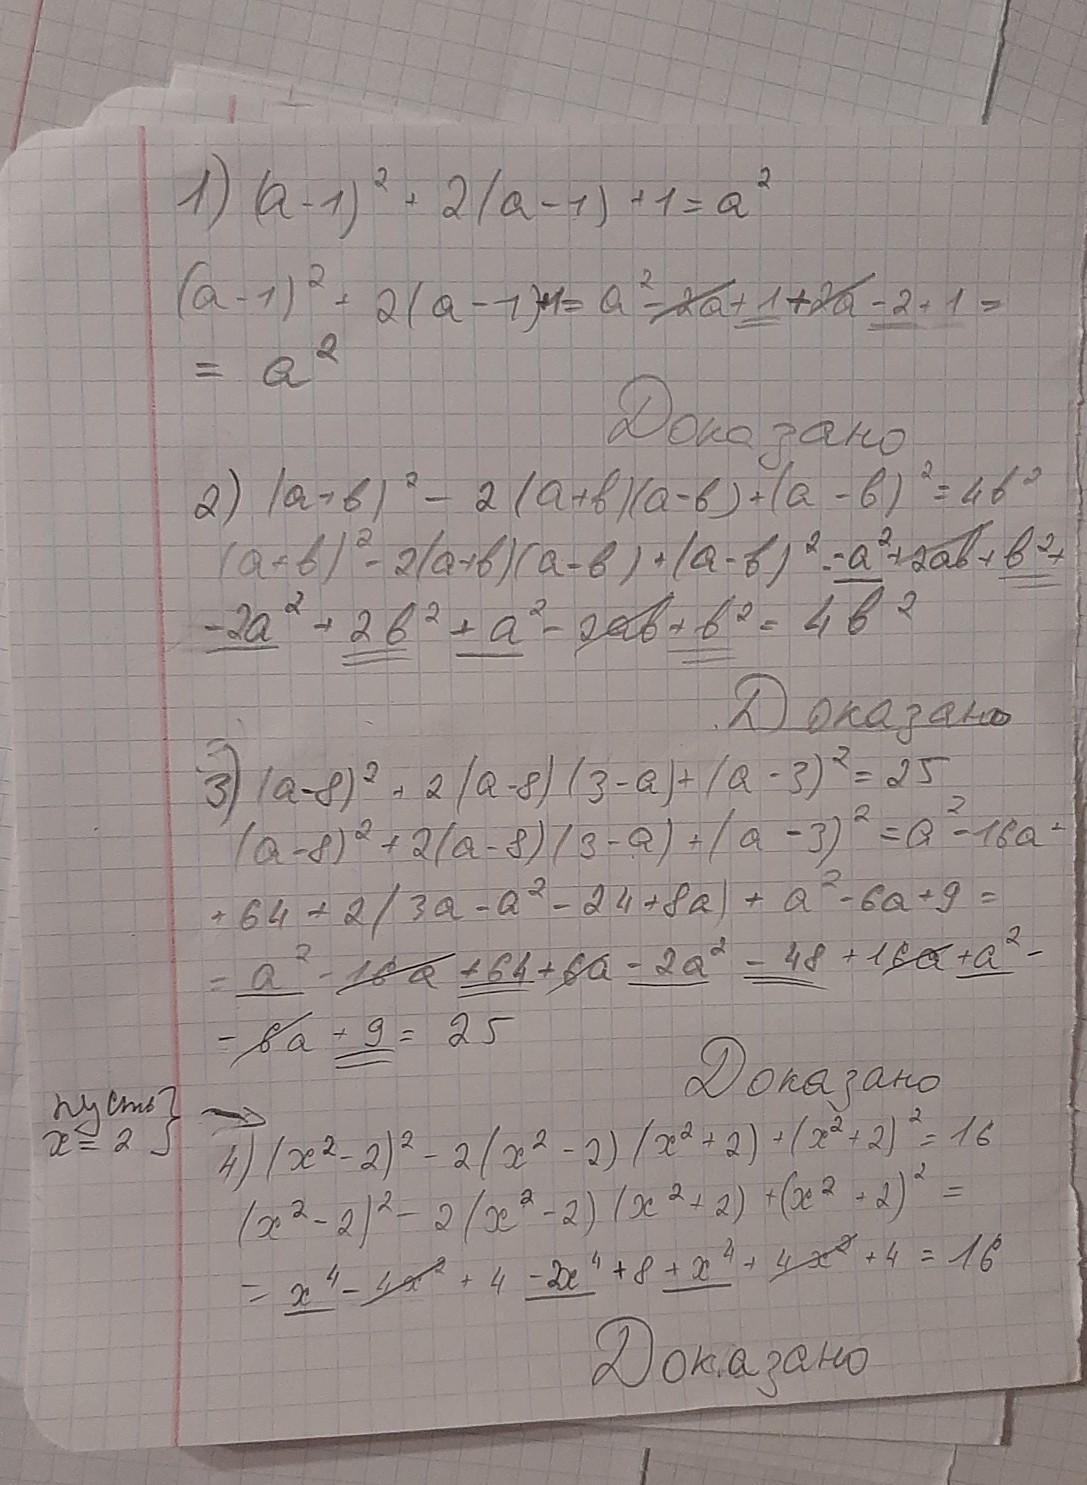 1) (a-1)² + 2(a-1) +1 = a²
(a-1)² + 2(a-1)+1 = a² - 2a + 1 + 2a - 2 + 1 =
= a²
Доказано
2) (a+b)² - 2(a+b)(a-b) + (a-b)² = 4b²
(a+b)² - 2(a+b)(a-b) + (a-b)² = a² + 2ab + b² +
- 2a² + 2b² + a² - 2ab + b² = 4b²
Доказано
3) (a-8)² + 2(a-8)(3-a) + (a-3)² = 25
(a-8)² + 2(a-8)(3-a) + (a-3)² = a² - 16a +
+ 64 + 2(3a - a² - 24 + 8a) + a² - 6a + 9 =
= a² - 16a + 64 + 6a - 2a² - 48 + 16a + a² -
- 6a + 9 = 25
Доказано
пусть
x = 2 } →
4) (x² - 2)² - 2(x² - 2)(x² + 2) + (x² + 2)² = 16
(x² - 2)² - 2(x² - 2)(x² + 2) + (x² + 2)² =
= x⁴ - 4x² + 4 - 2x⁴ + 8 + x⁴ + 4x² + 4 = 16
Доказано